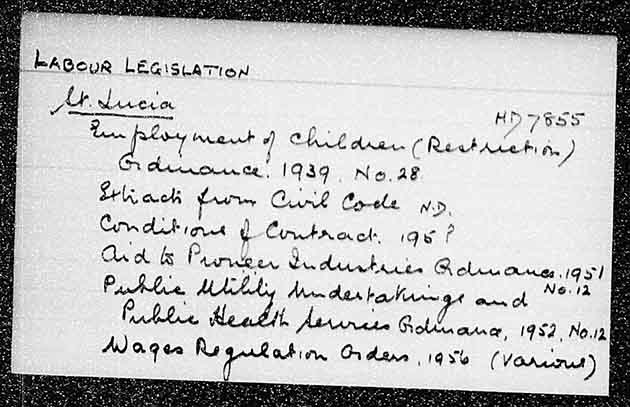 LABOUR LEGISLATION
St. Lucia
HD 7855
Employment of Children (Restriction)
Ordinance. 1939. No. 28.
Extracts from Civil Code N.D.
Conditions of Contract. 195?
Aid to Pioneer Industries Ordinance. 1951
No. 12
Public Utility Undertakings and
Public Health Services Ordinance, 1952, No. 12
Wages Regulation Orders, 1956 (Various)